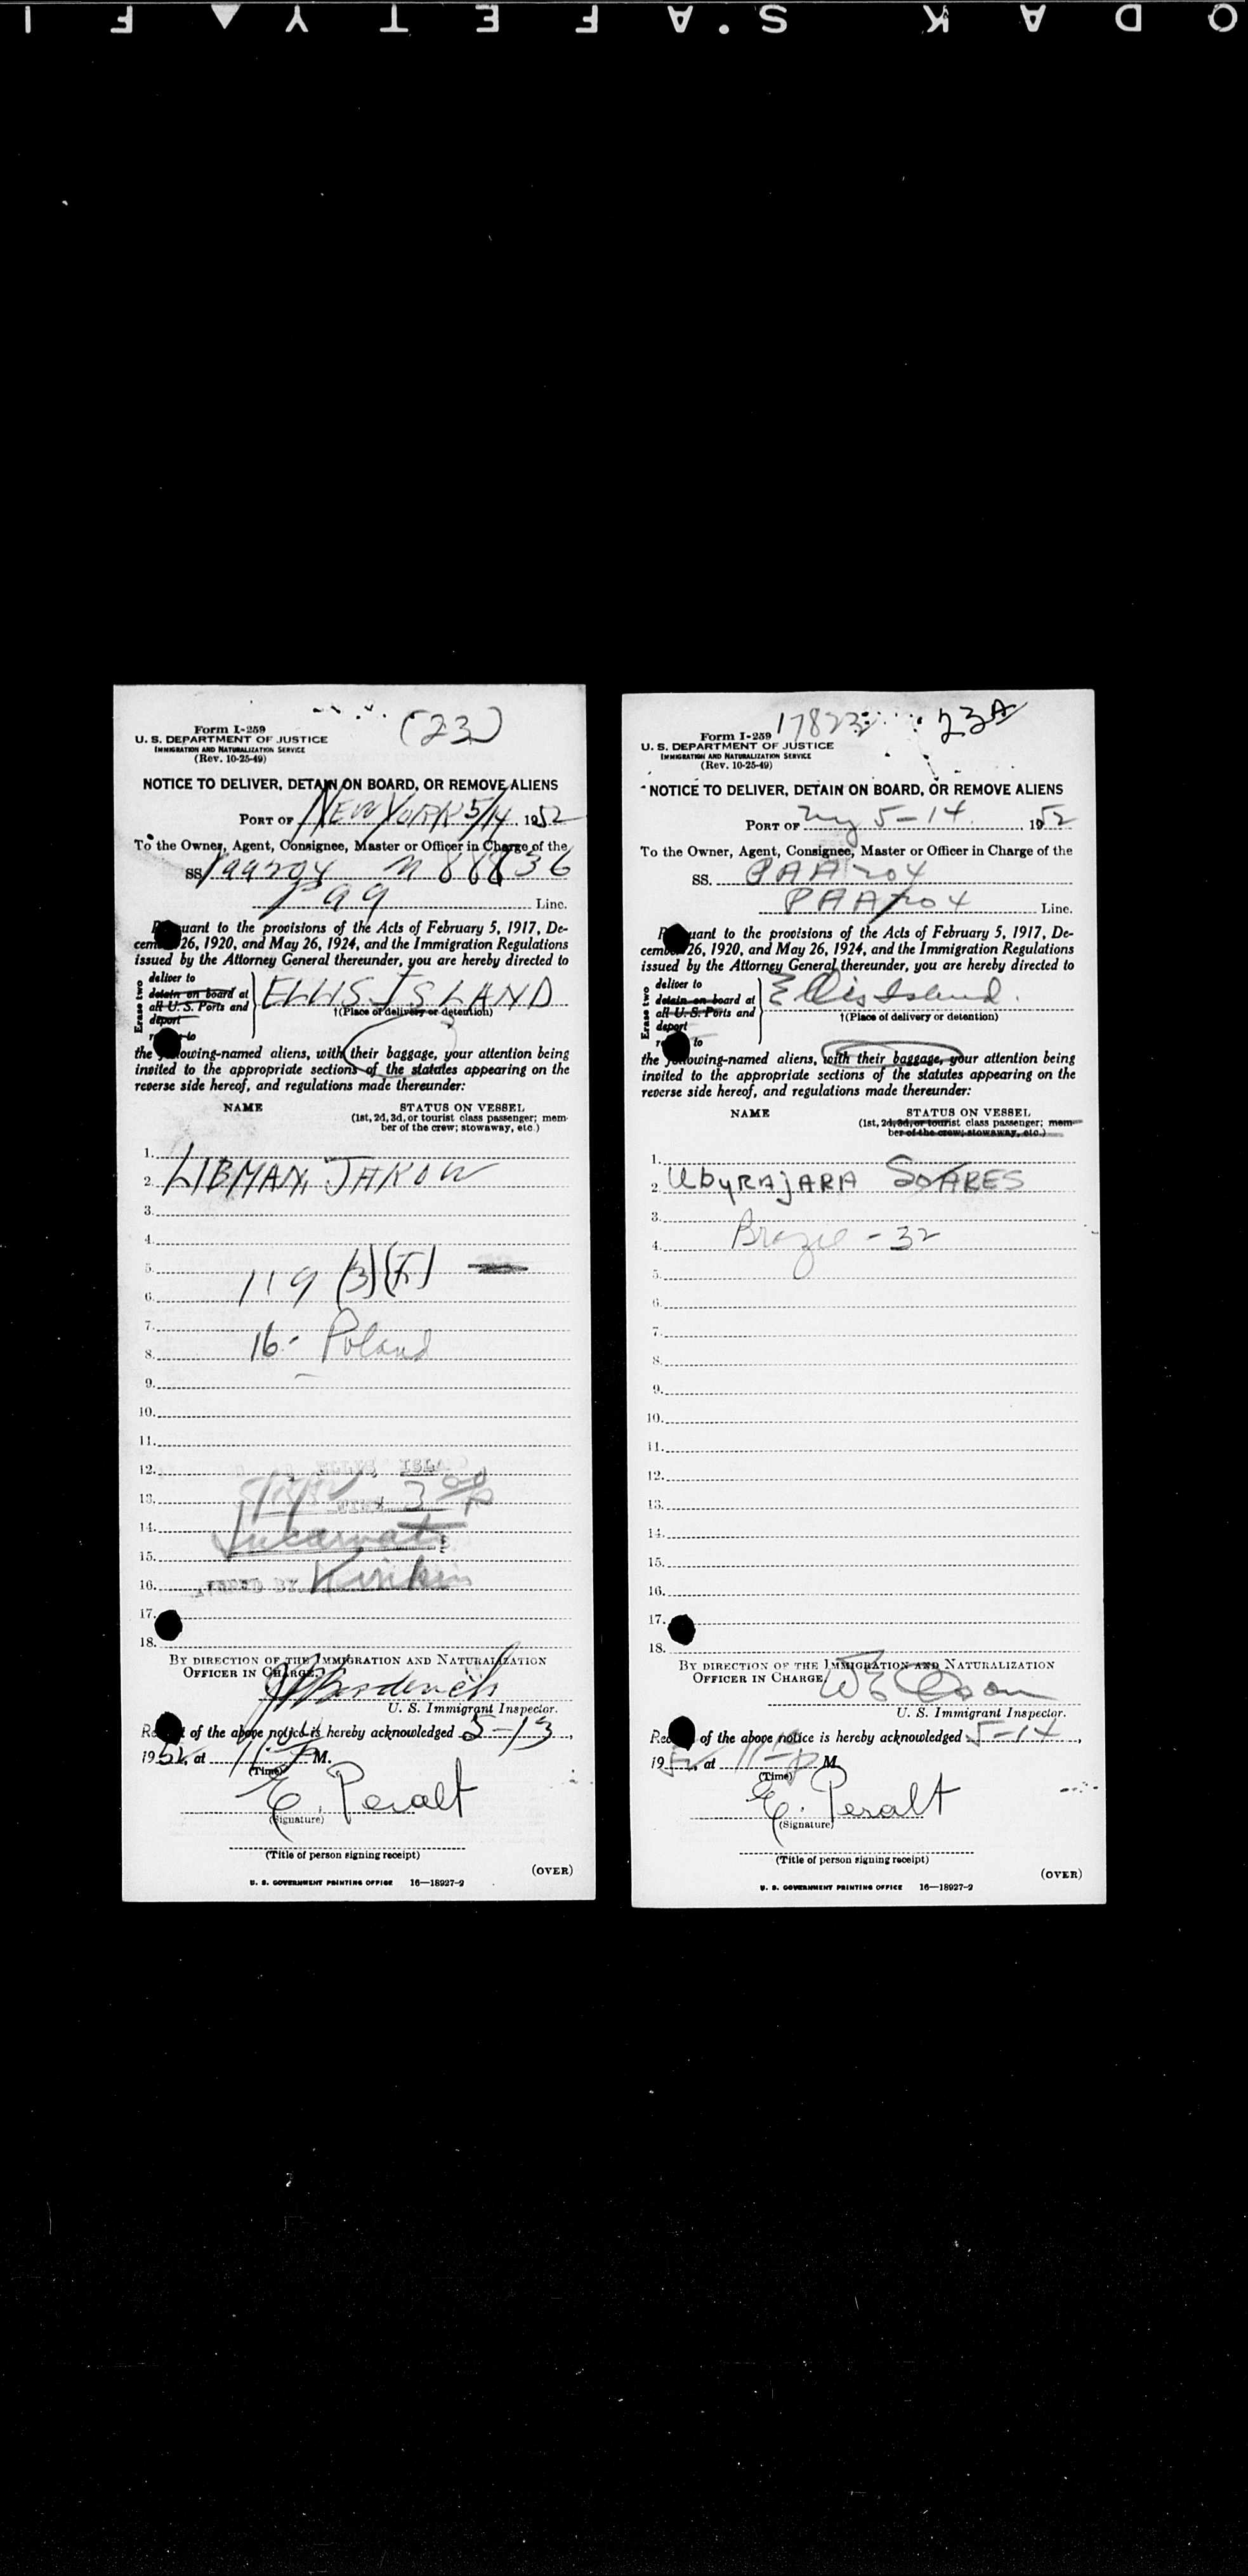 KODAK'S AFETY F I
(23)
Form I-259
U. S. DEPARTMENT OF JUSTICE
IMMIGRATION AND NATURALIZATION SERVICE
(Rev. 10-25-49)
NOTICE TO DELIVER, DETAIN ON BOARD, OR REMOVE ALIENS
PORT OF NEW YORK 5/14, 1952
To the Owner, Agent, Consignee, Master or Officer in Charge of the
SS. Paa 204 N 88836
Paa Line.
uant to the provisions of the Acts of February 5, 1917, De-
cem 26, 1920, and May 26, 1924, and the Immigration Regulations
issued by the Attorney General thereunder, you are hereby directed to
Erase two
deliver to
detain on board at
all U. S. Ports and
deport
to
ELLIS ISLAND
†(Place of delivery or detention)
the owing-named aliens, with their baggage, your attention being
invited to the appropriate sections of the statutes appearing on the
reverse side hereof, and regulations made thereunder:
NAME STATUS ON VESSEL
(1st, 2d, 3d, or tourist class passenger; mem-
ber of the crew; stowaway, etc.)
1.
2. LIBMAN, JAKOW
3.
4.
5. 119 (3)
6.
7.
8. 16 - Poland
9.
10.
11.
12. ELLIS ISLA
13. TIME 3 00 P
14.
15.
16. BY
17.
18.
BY DIRECTION OF THE IMMIGRATION AND NATURALIZATION
OFFICER IN CHARGE.
U. S. Immigrant Inspector.
Re of the above notice is hereby acknowledged 5-13,
1952, at 11 P M.
(Time)
E. Peralt
(Signature)
(Title of person signing receipt)
(OVER)
U. S. GOVERNMENT PRINTING OFFICE 16—18927-2
17823 23A
Form I-259
U. S. DEPARTMENT OF JUSTICE
IMMIGRATION AND NATURALIZATION SERVICE
(Rev. 10-25-49)
NOTICE TO DELIVER, DETAIN ON BOARD, OR REMOVE ALIENS
PORT OF Ny 5-14, 1952
To the Owner, Agent, Consignee, Master or Officer in Charge of the
SS. PAA 204
PAA 204 Line.
uant to the provisions of the Acts of February 5, 1917, De-
cemb 26, 1920, and May 26, 1924, and the Immigration Regulations
issued by the Attorney General thereunder, you are hereby directed to
Erase two
deliver to
detain on board at
all U. S. Ports and
deport
to
Ellis Island.
†(Place of delivery or detention)
the owing-named aliens, with their baggage, your attention being
invited to the appropriate sections of the statutes appearing on the
reverse side hereof, and regulations made thereunder:
NAME STATUS ON VESSEL
(1st, 2d, 3d, or tourist class passenger; mem-
ber of the crew; stowaway, etc.)
1.
2. UbyRAjARA SOARES
3.
4. Brazil - 32
5.
6.
7.
8.
9.
10.
11.
12.
13.
14.
15.
16.
17.
18.
BY DIRECTION OF THE IMMIGRATION AND NATURALIZATION
OFFICER IN CHARGE
U. S. Immigrant Inspector.
Rec of the above notice is hereby acknowledged 5-14,
1952, at 11 P M.
(Time)
E. Peralt
(Signature)
(Title of person signing receipt)
(OVER)
U. S. GOVERNMENT PRINTING OFFICE 16—18927-2